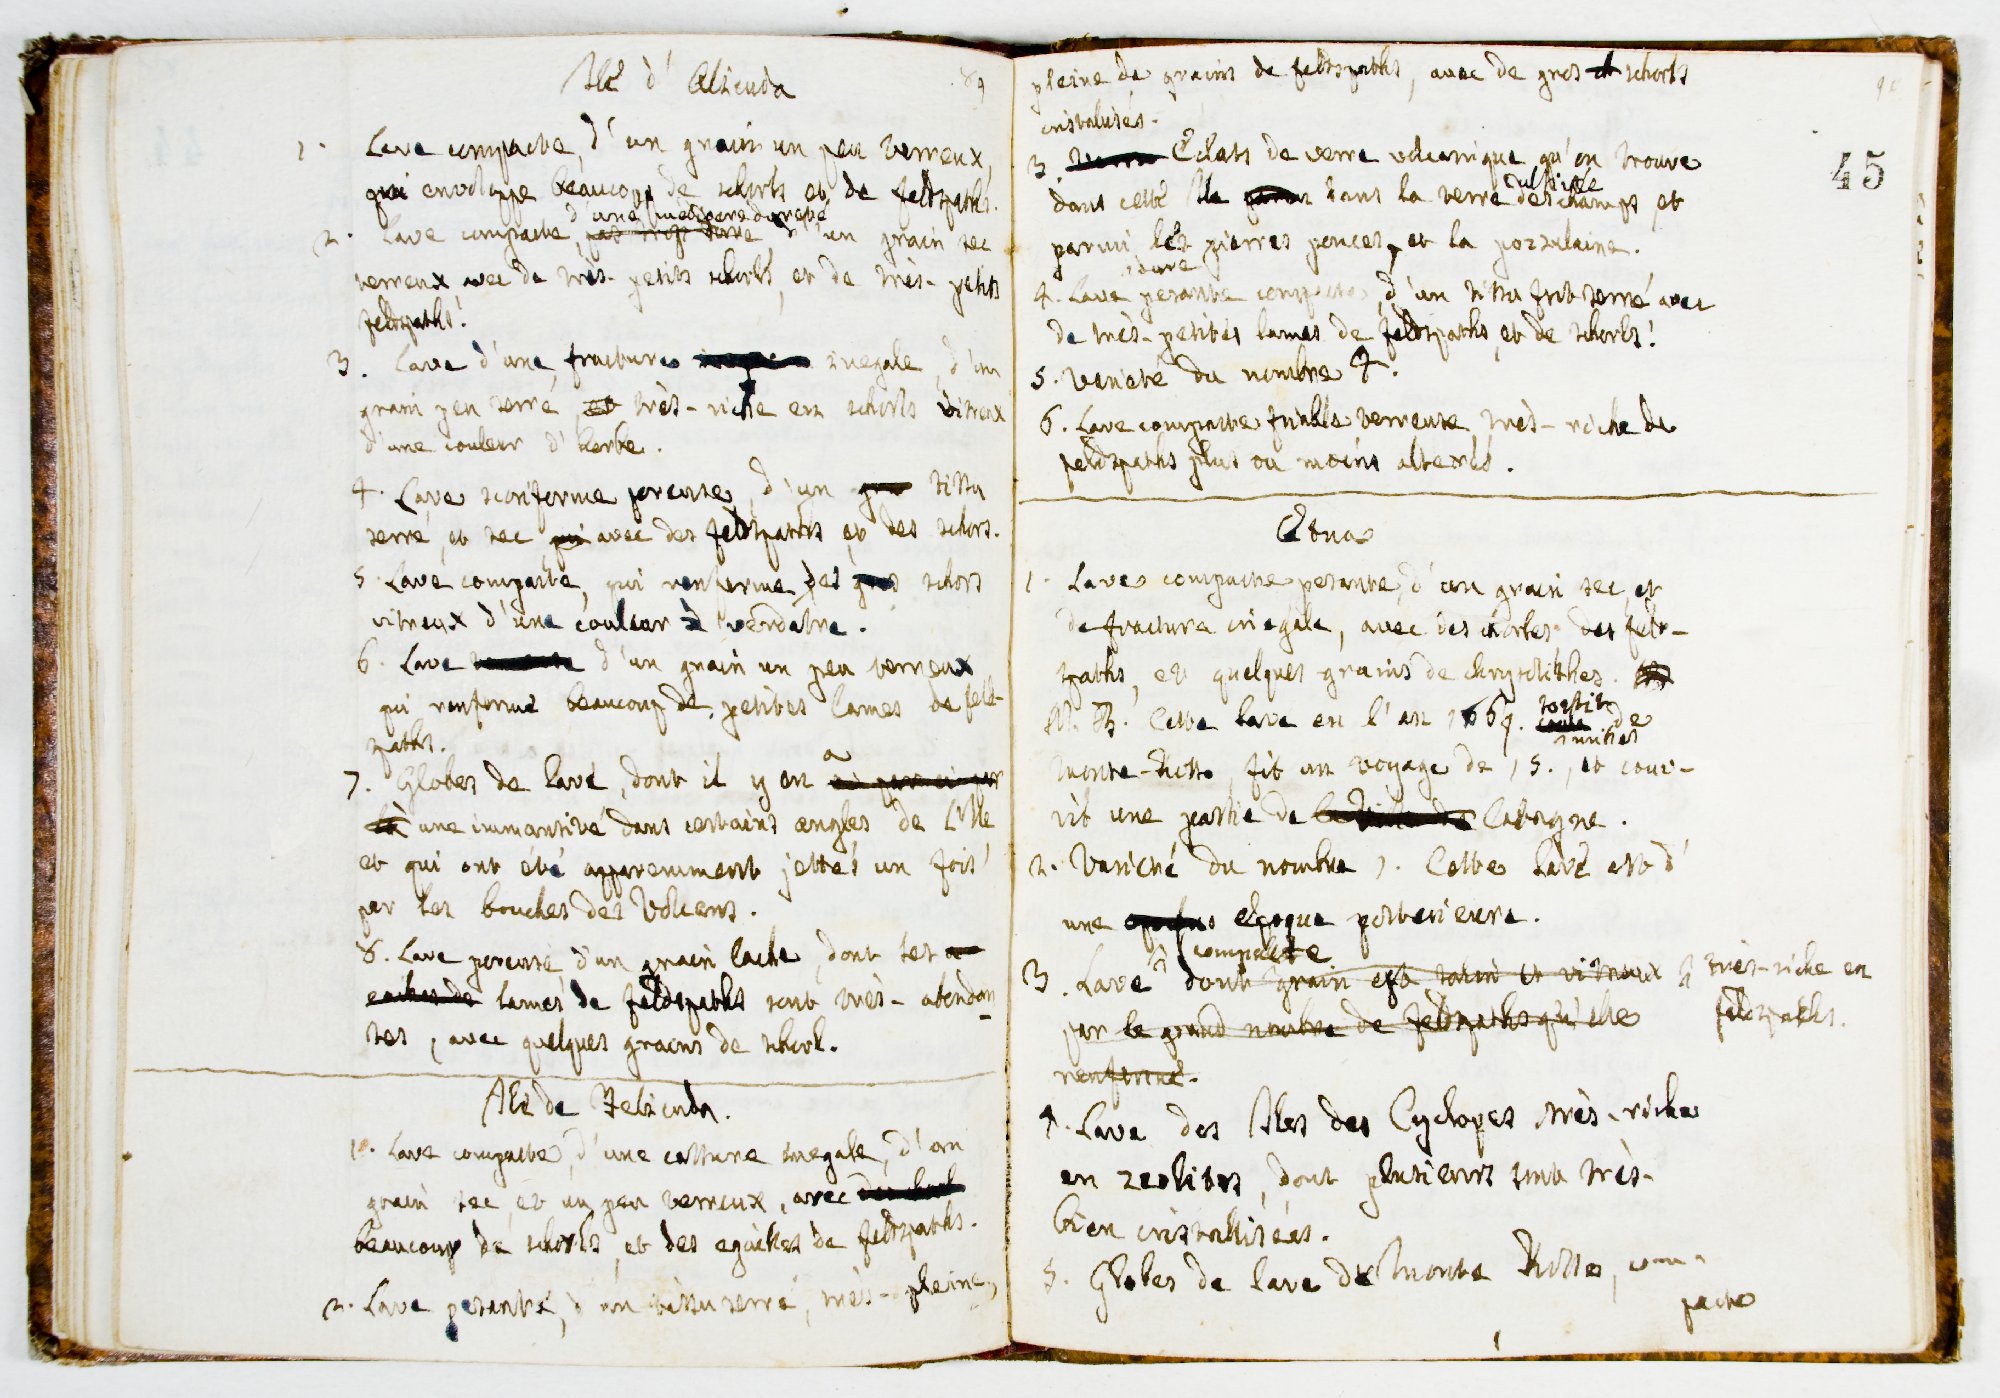 Ile d' Alicuda
89
1. Lave compacte, d'un grain un peu terreux,
qui envelope beaucoup de schorls et de feldspaths.
d'une mediocre dureté
2. Lave compacte, d'un grain sec
terreux avec de très-petits schorls, et de très-petits
feldspaths.
3. Lave d'une fracture inegale, d'un
grain peu serré, et très-riche en schorls vitreux
d'une couleur d'herbe.
4. Lave scoriforme poreuse, d'un tissu
serré, et sec, avec des feldspaths et des schors.
5. Lave compacte, qui renferme des gros schors
vitreux d'une couleur verdatre.
6. Lave d'un grain un peu terreux
qui renferme beaucoup de petites lames de feld-
spaths.
a
7. Globes de lave, dont il y en
une immansité dans certains angles de l'Ile
et qui ont été apparemment jettés un fois
par les bouches des Volcans.
8. Lave poreuse d'un grain lache, dont les
lames de feldspaths sont très-abondan
tes, avec quelques grains de schorl.
Ile de Felicuda.
1. Lave compacte, d'une cassure inegale, d'un
grain sec, et un peu terreux, avec
beaucoup de schorls, et des eguilles de feldspaths.
2. Lave pesante, d'un tissu serré, très-pleine,
pleine de grains de feldspaths, avec de gros schorls
cristalisés.
90
45
3. Eclats de verre volcanique qu'on trouve
cultivée
dans cette Ile dans la terre des champs, et
parmi les pierres ponces, et la pozzolaine.
dure
4. Lave pesante compacte, d'un tissu fort serré avec
de très-petites lames de feldspaths, et de schorls.
5. Varieté du nombre 4.
6. Lave compacte friable terreuse, très-riche de
feldspaths plus ou moins alterés.
Etna
1. Lave compacte pesante, d'un grain sec, et
de fracture inegale, avec des schorles des feld-
spaths, et quelques grains de chrysolithes.
N. B. Cette lave en l'an 1669. sortit de
Monte-Rosso, fit un voyage de 15. , et couv-
rit une partie de Catagne.
2. Varieté du nombre 1. Cette lave est d'
une epoque posterieure.
compacte
3. Lave dont grain est salin et vitreux très-riche en
par le grand nombre de feldspaths qu'elle feldspaths.
renferme.
4. Lave des Iles des Cyclopes très-riche
en zeolites, dont plusieurs sont très-
bien cristallisées.
5. Globes de lave de Monte Rosso, com-
pacte